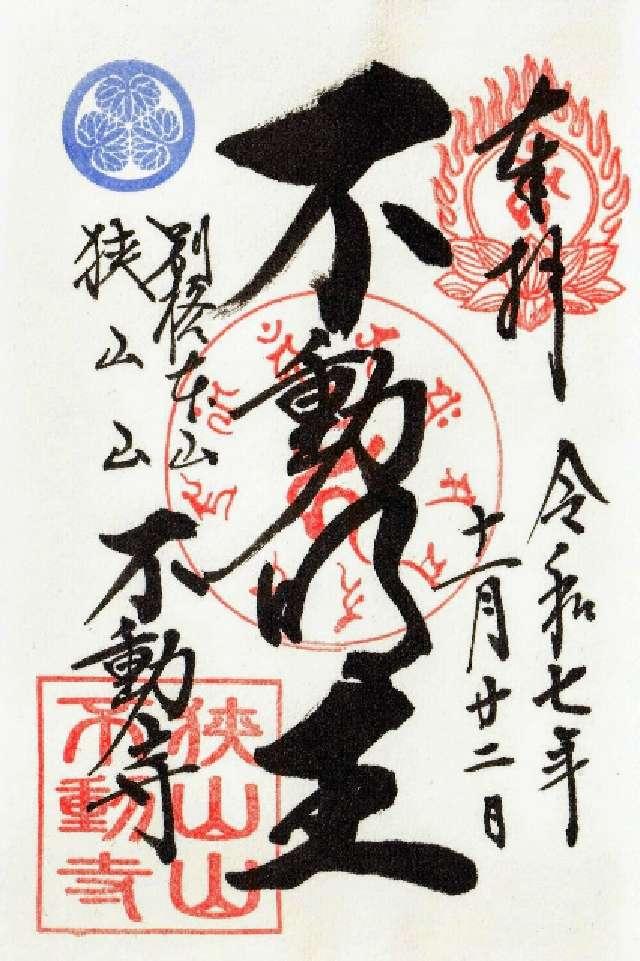 奉拝
令和七年
十一月廿二日
不動明王
別格本山
狭山山
不動寺
狭山山
不動寺